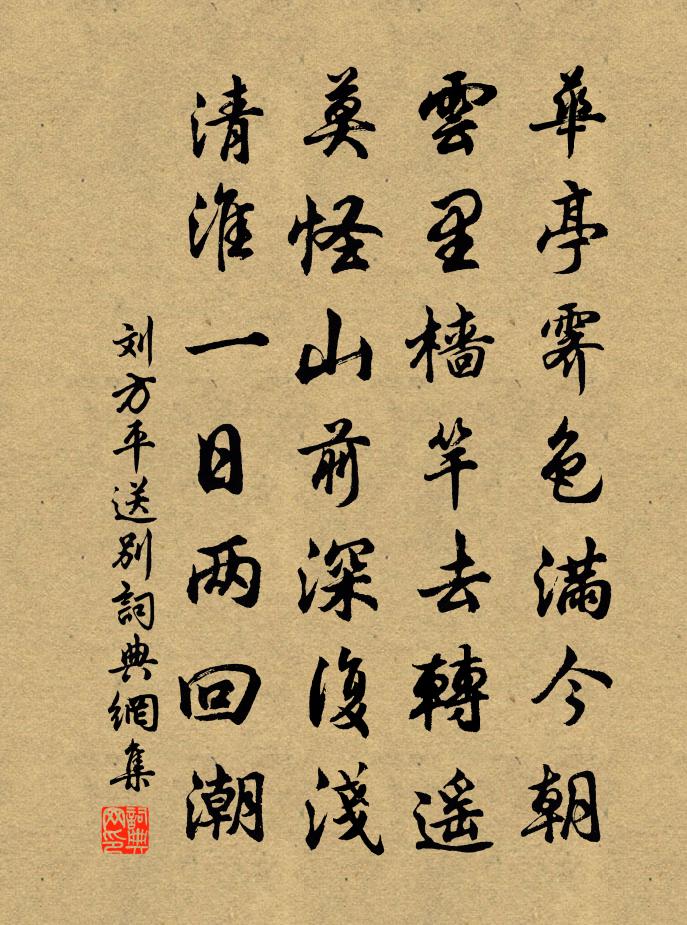 華亭霽色滿今朝
雲里檣竿去轉遥
莫怪山前深復淺
清淮一日两回潮
刘方平送别詞典網集
詞典网印